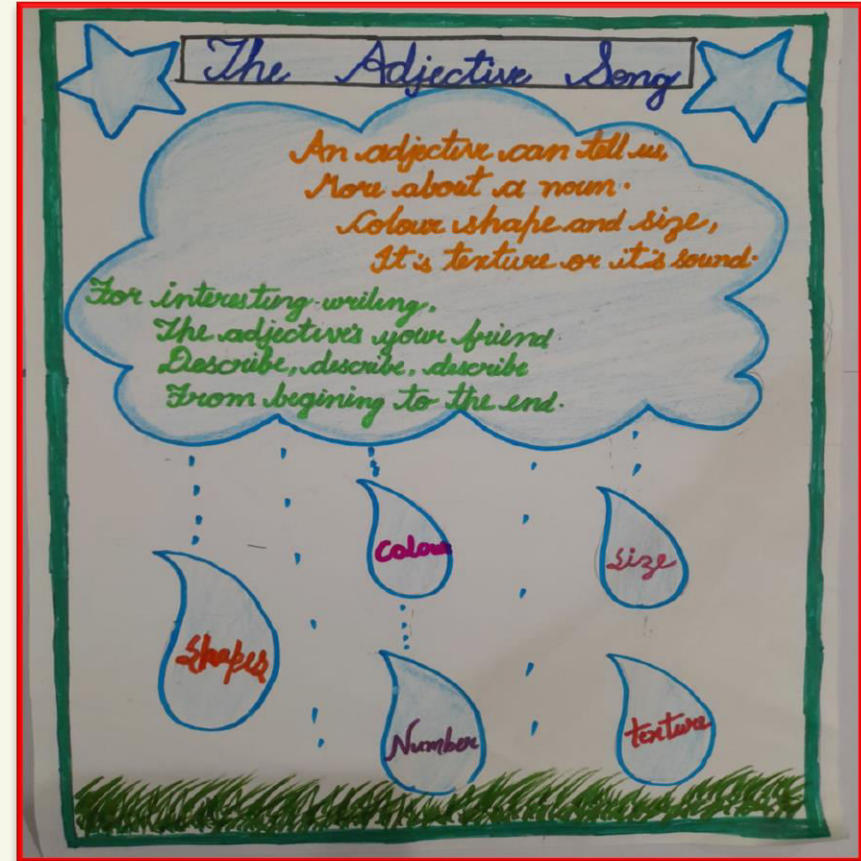 The Adjective Song
An adjective can tell us,
More about a noun.
Colour shape and size,
It is texture or it is sound.
For interesting writing,
The adjective's your friend
Describe, describe, describe
From begining to the end.
Colour
Size
Shapes
Number
texture